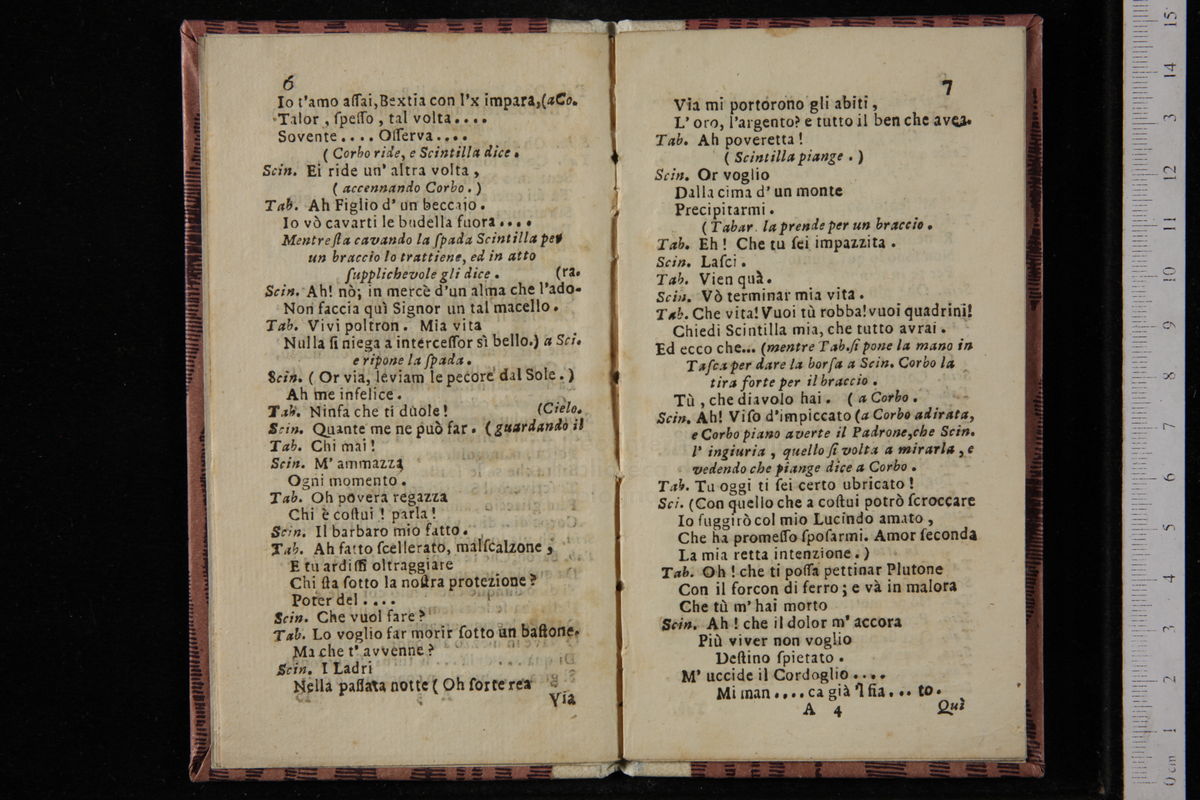 6
Io t'amo aſſai, Bextia con l'x impara, (a Co.
Talor , ſpeſſo , tal volta ....
Sovente .... Oſſerva ....
( Corbo ride, e Scintilla dice .
Scin. Ei ride un' altra volta ,
( accennando Corbo . )
Tab. Ah Figlio d' un beccaio .
Io vò cavarti le budella fuora ....
Mentre ſta cavando la ſpada Scintilla per
un braccio lo trattiene, ed in atto
ſupplichevole gli dice . (ra.
Scin. Ah! nò; in mercè d'un alma che l'ado-
Non faccia quì Signor un tal macello .
Tab. Vivi poltron . Mia vita
Nulla ſi niega a interceſſor sì bello.) a Sci.
e ripone la ſpada .
Scin. ( Or via, leviam le pecore dal Sole . )
Ah me infelice .
Tab. Ninfa che ti duole ! (Cielo.
Scin. Quante me ne può far . ( guardando il
Tab. Chi mai !
Scin. M' ammazza
Ogni momento .
Tab. Oh povera regazza
Chi è coſtui ! parla !
Scin. Il barbaro mio fatto .
Tab. Ah fatto ſcellerato, malſcalzone ,
E tu ardiſſi oltraggiare
Chi ſta ſotto la noſtra protezione ?
Poter del ....
Scin. Che vuol fare ?
Tab. Lo voglio far morir ſotto un baſtone.
Ma che t' avvenne ?
Scin. I Ladri
Nella paſſata notte ( Oh ſorte rea
Via
7
Via mi portorono gli abiti ,
L' oro, l'argento? e tutto il ben che avea.
Tab. Ah poveretta !
( Scintilla piange . )
Scin. Or voglio
Dalla cima d' un monte
Precipitarmi .
( Tabar. la prende per un braccio .
Tab. Eh ! Che tu ſei impazzita .
Scin. Laſci .
Tab. Vien quà .
Scin. Vò terminar mia vita .
Tab. Che vita! Vuoi tù robba! vuoi quadrini!
Chiedi Scintilla mia, che tutto avrai .
Ed ecco che... (mentre Tab. ſi pone la mano in
Taſca per dare la borſa a Scin. Corbo la
tira forte per il braccio .
Tù , che diavolo hai . ( a Corbo .
Scin. Ah! Viſo d'impiccato (a Corbo adirata,
e Corbo piano averte il Padrone, che Scin.
l' ingiuria , quello ſi volta a mirarla , e
vedendo che piange dice a Corbo .
Tab. Tu oggi ti ſei certo ubricato !
Sci. (Con quello che a coſtui potrò ſcroccare
Io fuggirò col mio Lucindo amato ,
Che ha promeſſo ſpoſarmi. Amor ſeconda
La mia retta intenzione . )
Tab. Oh ! che ti poſſa pettinar Plutone
Con il forcon di ferro ; e và in malora
Che tù m' hai morto
Scin. Ah ! che il dolor m' accora
Più viver non voglio
Deſtino ſpietato .
M' uccide il Cordoglio ....
Mi man .... ca già 'l fia ... to .
A 4 Quì
15
14
13
12
11
10
9
8
7
6
5
4
3
2
1
0 cm